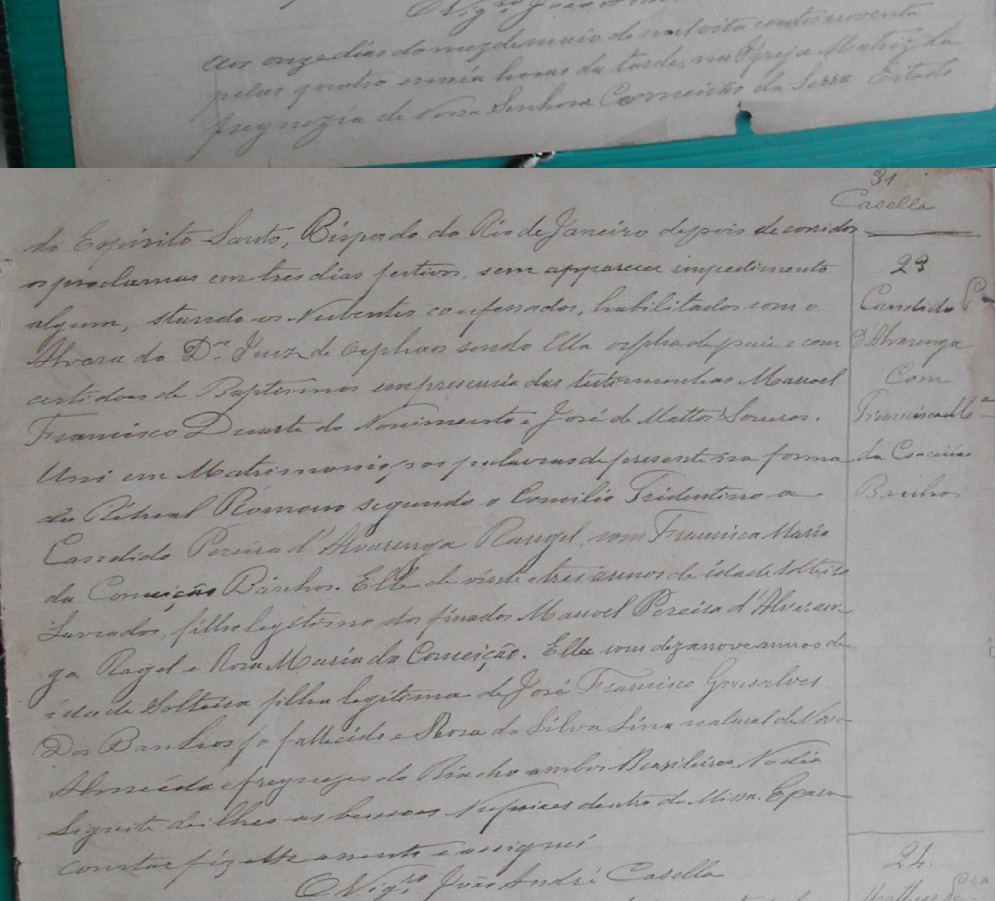 O Vigro João An
Aos onze dias do mez de maio de mil oito centos noventa
pelas quatro e meia horas da tarde, na Igreja Matriz da
freguezia de Nossa Senhora Conceicão da Serra Estado
31
Casella
do Espirito Santo, Bispado do Rio de Janeiro depois de corridos
os proclamas em tres dias festivos, sem apparecer impedimento
algum, stando os Nubentes confessados, habilitados com o
Alvara do Dr. Juiz de Orphãos sendo Ella orphã de pai e com
certidoes de Baptismos em presencia das testemunhas Manoel
Francisco Duarte do Nascimento e José de Mattos
Uni em Matrimonio por palavras de presente na forma
do Ritual Romano segundo o Concilio Tridentino a
Candido Pereira d'Alvarenga Rangel, com Francisca Maria
da Conceição Bánhos. Elle de vinte e tres annos de idade solteiro
Lavrador, filho legitimo dos finados Manoel Pereira d'Alvaren
ga Ragel e Rosa Maria da Conceição. Ella com dezanove annos de
idade Solteira filha legitima de José Francisco Gonsalves
Dos Banhos ja fallecido e Rosa da Silva Lira natural de Nova
Almeida e freguezes do Riacho ambos Brasileiros. No dia
Siguite dei lhes as bensoes Nupcices dentro da Missa. E para
constar fiz este assento e assignei
O Vigro João André Casella
23
Candido Pra
D'Alvarenga
Com
Francisca Ma
da Conceição
Banhos
24.